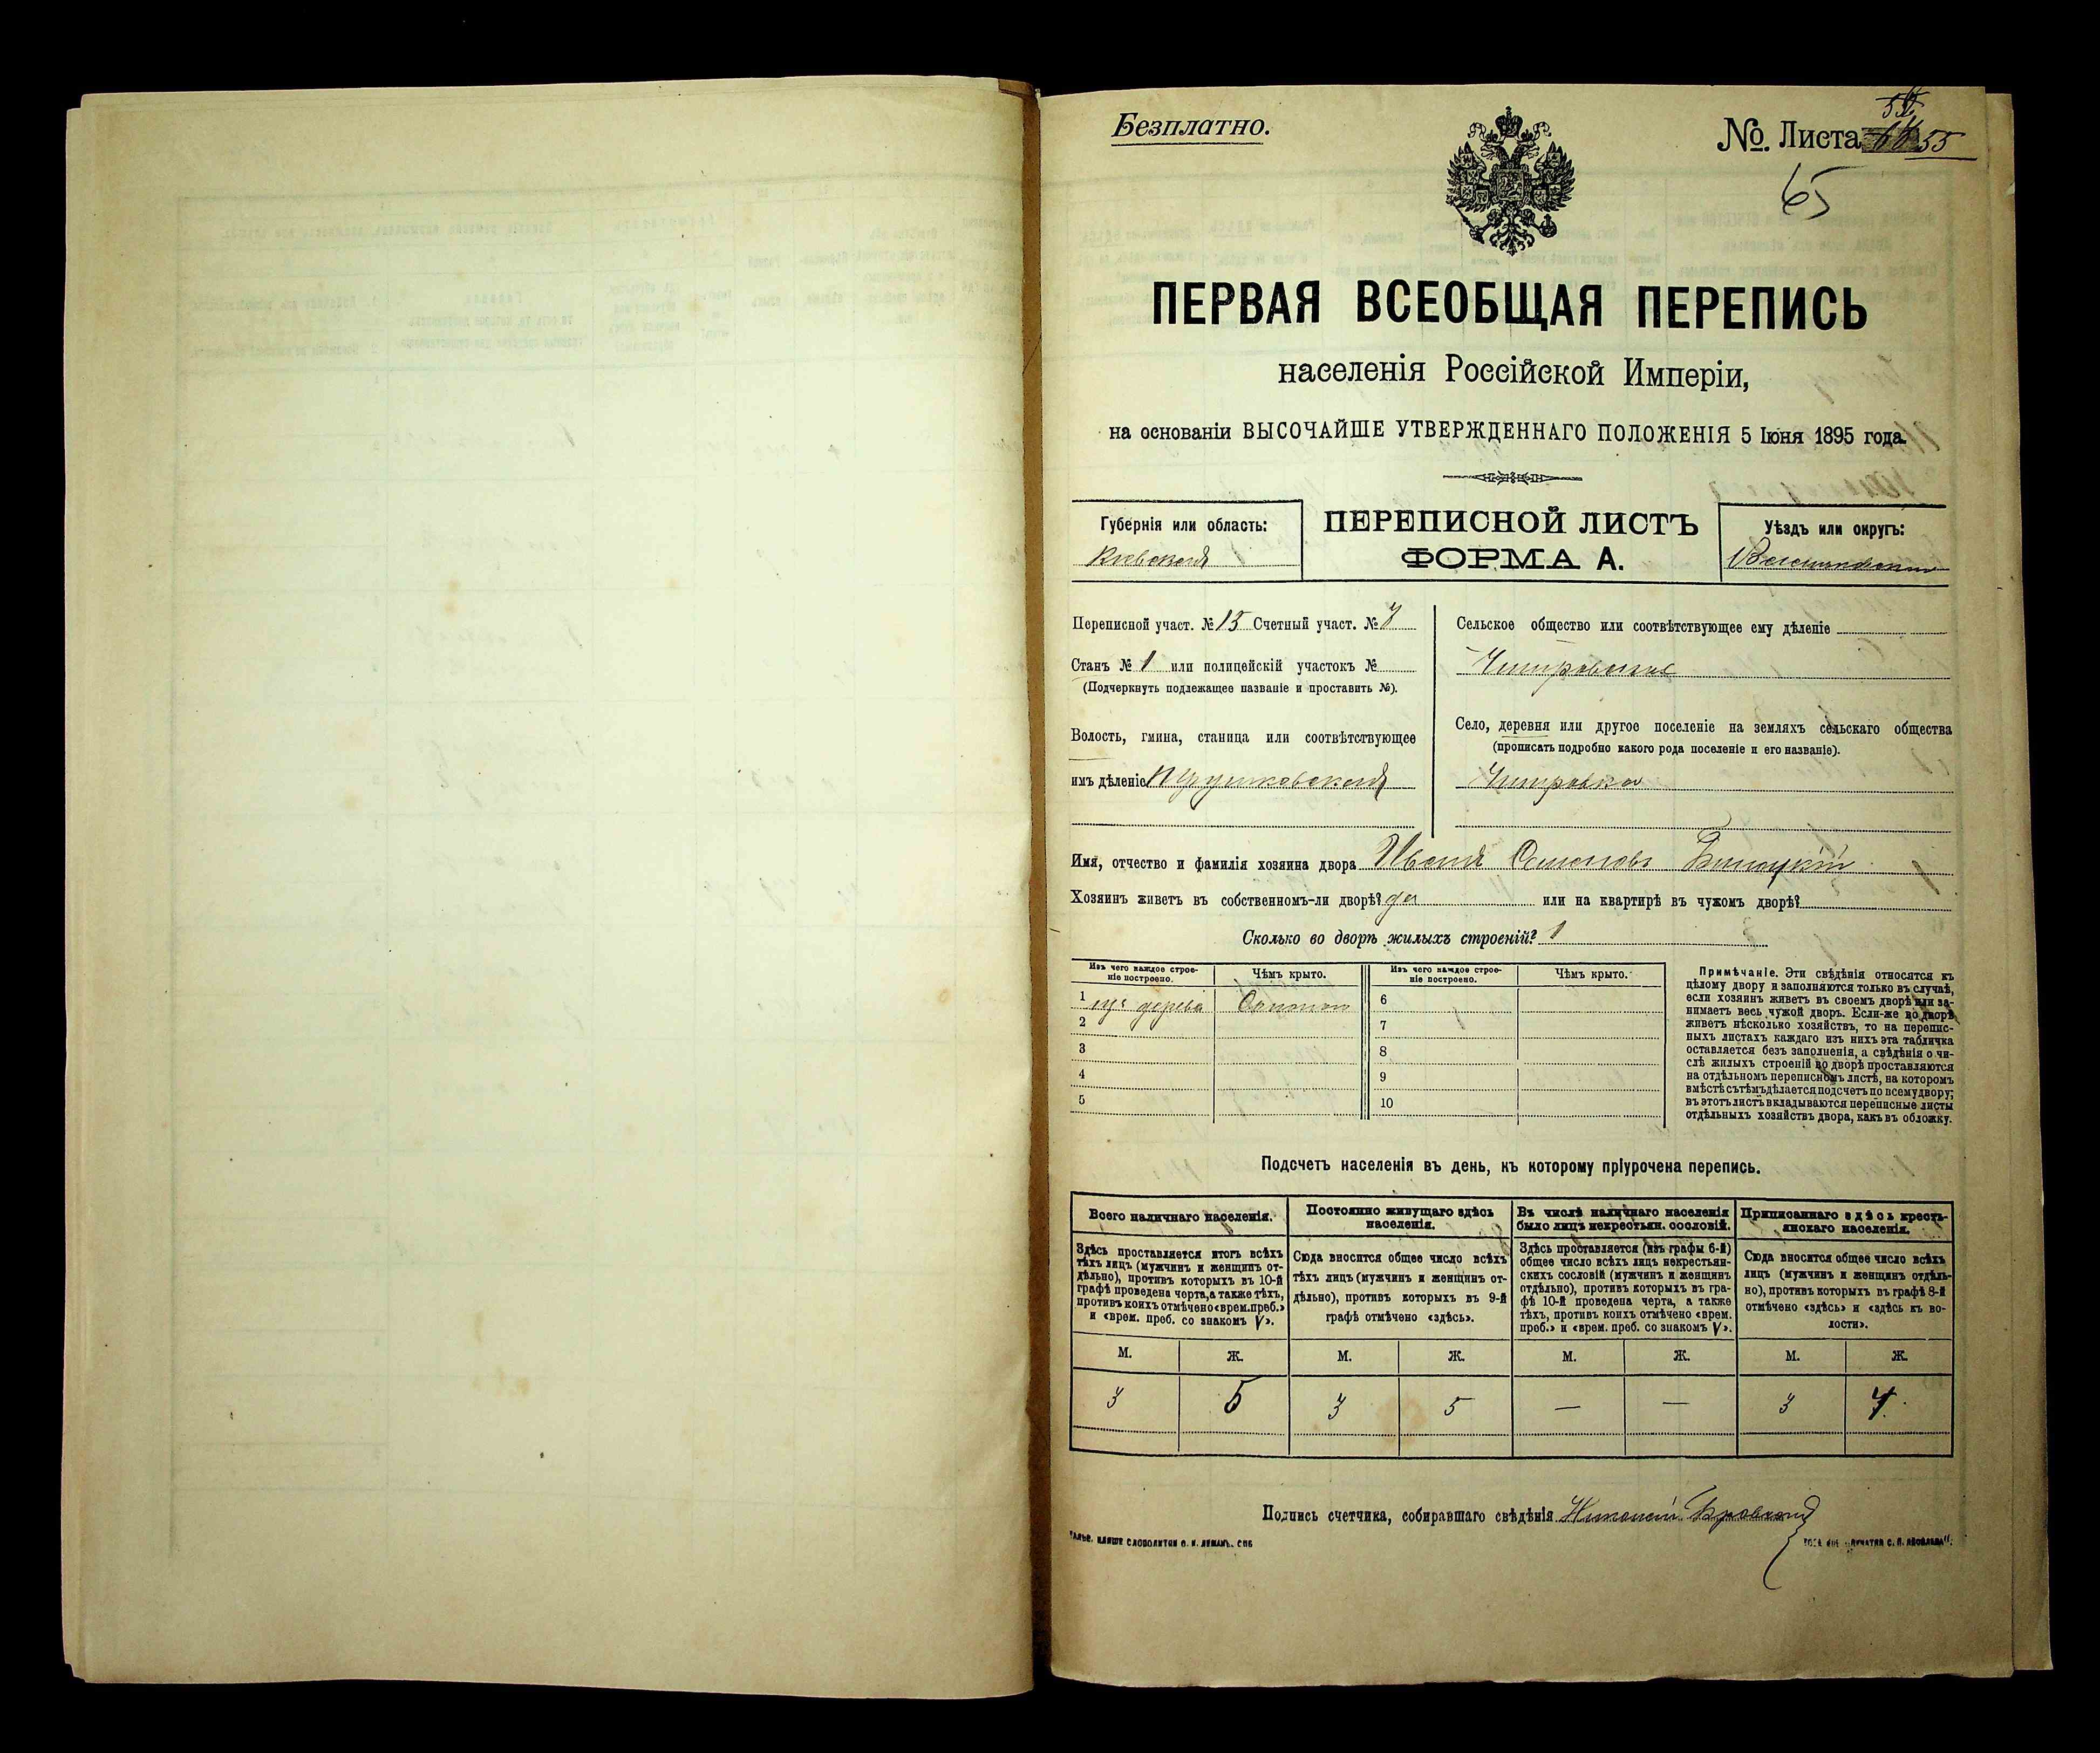 Безплатно.
№. Листа 55
65
ПЕРВАЯ ВСЕОБЩАЯ ПЕРЕПИСЬ
населенія Россійской Имперіи,
на основаніи ВЫСОЧАЙШЕ УТВЕРЖДЕННАГО ПОЛОЖЕНІЯ 5 Іюня 1895 года
Губернія или область:
Кіевская
ПЕРЕПИСНОЙ ЛИСТЪ
ФОРМА А.
Уѣздъ или округъ:
Васильковскій
Переписной участ. № 15 Счетный участ. №
Станъ № 1 или полицейскій участокъ №
(Подчеркнуть подлежащее названіе и проставить №).
Волость, гмина, станица или соотвѣтствующее
имъ дѣленіе
Сельское общество или соотвѣтствующее ему дѣленіе
Село, деревня или другое поселеніе на земляхъ сельскаго общества
(прописать подробно какого рода поселеніе и его названіе).
Имя, отчество и фамилія хозяина двора Иванъ Семеновъ
Хозяинъ живетъ въ собственномъ-ли дворѣ? да или на квартирѣ въ чужомъ дворѣ?
Сколько во дворѣ жилыхъ строеній? 1
Изъ чего каждое строе-
ніе построено.
Чѣмъ крыто.
Изъ чего каждое строе-
ніе построено.
Чѣмъ крыто.
1 изъ дерева Соломой
2
3
4
5
6
7
8
9
10
Примѣчаніе. Эти свѣдѣнія относятся къ
цѣлому двору и заполняются только въ случаѣ,
если хозяинъ живетъ въ своемъ дворѣ или за-
нимаетъ весь чужой дворъ. Если-же во дворѣ
живетъ нѣсколько хозяйствъ, то на перепис-
ныхъ листахъ каждаго изъ нихъ эта табличка
оставляется безъ заполненія, а свѣдѣнія о чи-
слѣ жилыхъ строеній во дворѣ проставляются
на отдѣльномъ переписномъ листѣ, на которомъ
вмѣстѣ съ тѣмъ дѣлается подсчетъ по всему двору;
въ этотъ листъ вкладываются переписные листы
отдѣльныхъ хозяйствъ двора, какъ въ обложку.
Подсчетъ населенія въ день, къ которому пріурочена перепись.
Всего наличнаго населенія.
Здѣсь проставляется итогъ всѣхъ
тѣхъ лицъ (мужчинъ и женщинъ от-
дѣльно), противъ которыхъ въ 10-й
графѣ проведена черта, а также тѣхъ,
противъ коихъ отмѣчено «врем. преб.»
и «врем. преб. со знакомъ V».
Постоянно живущаго здѣсь
населенія.
Сюда вносится общее число всѣхъ
тѣхъ лицъ (мужчинъ и женщинъ от-
дѣльно), противъ которыхъ въ 9-й
графѣ отмѣчено «здѣсь».
Въ числѣ наличнаго населенія
было лицъ некрестьян. сословій.
Здѣсь проставляется (изъ графы 6-й)
общее число всѣхъ лицъ некрестьян-
скихъ сословій (мужчинъ и женщинъ
отдѣльно), противъ которыхъ въ гра-
фѣ 10-й проведена черта, а также
тѣхъ, противъ коихъ отмѣчено «врем.
преб.» и «врем. преб. со знакомъ V».
Приписаннаго здѣсь кресть-
янскаго населенія.
Сюда вносится общее число всѣхъ
лицъ (мужчинъ и женщинъ отдѣль-
но), противъ которыхъ въ графѣ 8-й
отмѣчено «здѣсь» и «здѣсь къ во-
лости».
М. Ж. М. Ж. М. Ж. М. Ж.
3 5 3 5 — — 3 4
Подпись счетчика, собиравшаго свѣдѣнія